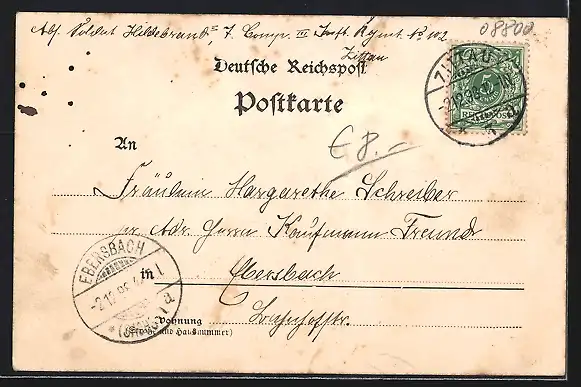 Abs. Soldat Hildebrand, 7. Comp. III Inft. Regmt. No 102
Zittau
08800
Deutsche Reichspost
Postkarte
ZITTAU
5
REICHSPOST
€ 8.-
An
Fräulein Margarethe Schreiber
pr. Adr. Herrn Kaufmann Freund
in Ebersbach
Bahnhofstr.
EBERSBACH
-2.12.98
(SACHSEN)
Wohnung
(Straße und Hausnummer)